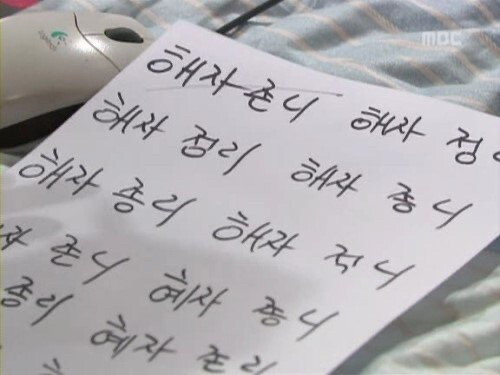 MBC
해자존니 해자 정
해자 정리 해자 종니
해자 종리 해자 적니
자 존니 혜자 종니
종리 혜자 존리